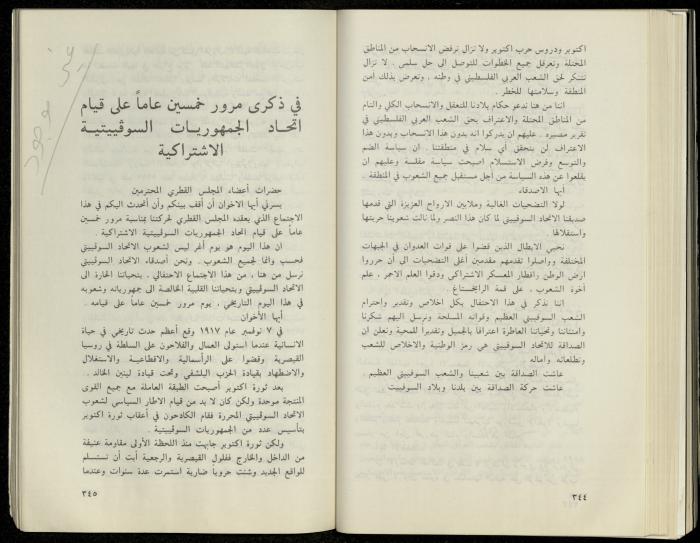 اكتوبر ودروس حرب اكتوبر ولا تزال ترفض الانسحاب من المناطق
المحتلة وتعرقل جميع الخطوات للتوصل الى حل سلمي . لا تزال
تتنكر لحق الشعب العربي الفلسطيني في وطنه ، وتعرض بذلك امن
المنطقة وسلامتها للخطر .
اننا من هنا ندعو حكام بلادنا للتعقل والانسحاب الكلي والتام
من المناطق المحتلة والاعتراف بحق الشعب العربي الفلسطيني في
تقرير مصيره . عليهم ان يدركوا انه بدون هذا الانسحاب وبدون هذا
الاعتراف لن يتحقق أي سلام في منطقتنا . ان سياسة الضم
والتوسع وفرض الاستسلام اصبحت سياسة مفلسة وعليهم ان
يقلعوا عن هذه السياسة من أجل مستقبل جميع الشعوب في المنطقة .
أيها الاصدقاء.
لولا التضحيات الغالية وملايين الارواح العزيزة التي قدمها
صديقنا الاتحاد السوفييتي لما كان هذا النصر ولما نالت شعوبنا حريتها
واستقلالها .
نحيي الابطال الذين قضوا على قوات العدوان في الجبهات
المختلفة وواصلوا تقدمهم مقدمين أغلى التضحيات الى أن حرروا
ارض الوطن واقطار المعسكر الاشتراكي ودقوا العلم الاحمر ، علم
أخوة الشعوب ، على قمة الرايخستاغ .
اننا نذكر في هذا الاحتفال بكل اخلاص وتقدير واحترام
الشعب السوفييتي العظيم وقواته المسلحة ونرسل اليهم شكرنا
وامتناننا وتحياتنا العاطرة اعترافا بالجميل وتقديرا للمحبة ونعلن ان
الصداقة للاتحاد السوفييتي هي رمز الوطنية والاخلاص للشعب
وتطلعاته وآماله
عاشت الصداقة بين شعبينا والشعب السوفييتي العظيم .
عاشت حركة الصداقة بين بلدنا وبلاد السوفييت
٣٤٤
في ذكرى مرور خمسين عاماً على قيام
اتحاد الجمهوريات السوڤييتية
الاشتراكية
حضرات أعضاء المجلس القطري المحترمين
يسرني أيها الاخوان أن أقف بينكم وأن أتحدث اليكم في هذا
الاجتماع الذي يعقده المجلس القطري لحركتنا بمناسبة مرور خمسين
عاماً على قيام اتحاد الجمهوريات السوڤييتية الاشتراكية .
ان هذا اليوم هو يوم أغر ليس لشعوب الاتحاد السوڤييتي
فحسب وانما لجميع الشعوب . ونحن أصدقاء الاتحاد السوڤييتي
نرسل من هنا ، من هذا الاجتماع الاحتفالي ، بتحياتنا الحارة الى
الاتحاد السوڤييتي وبتحياتنا القلبية الخالصة الى جمهورياته وشعوبه
في هذا اليوم التاريخي ، يوم مرور خمسين عاماً على قيامه .
أيها الأخوان
في ٧ نوفمبر عام ١٩١٧ وقع أعظم حدث تاريخي في حياة
الانسانية عندما استولى العمال والفلاحون على السلطة في روسيا
القيصرية وقضوا على الرأسمالية والاقطاعية والاستغلال
والاضطهاد بقيادة الحزب البلشفي وتحت قيادة لينين الخالد .
بعد ثورة اكتوبر أصبحت الطبقة العاملة مع جميع القوى
المنتجة موحدة ولكن كان لا بد من قيام الاطار السياسي لشعوب
الاتحاد السوڤييتي المحررة فقام الكادحون في أعقاب ثورة اكتوبر
بتأسيس عدد من الجمهوريات السوڤييتية .
ولكن ثورة اكتوبر جابهت منذ اللحظة الأولى مقاومة عنيفة
من الداخل والخارج ففلول القيصرية والرجعية أبت أن تستسلم
للواقع الجديد وشنت حروباً ضارية استمرت عدة سنوات وعندما
٣٤٥